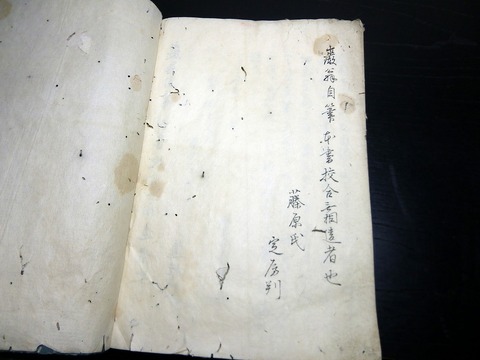 翁自筆本書校合無相違者也
藤原氏
定房判